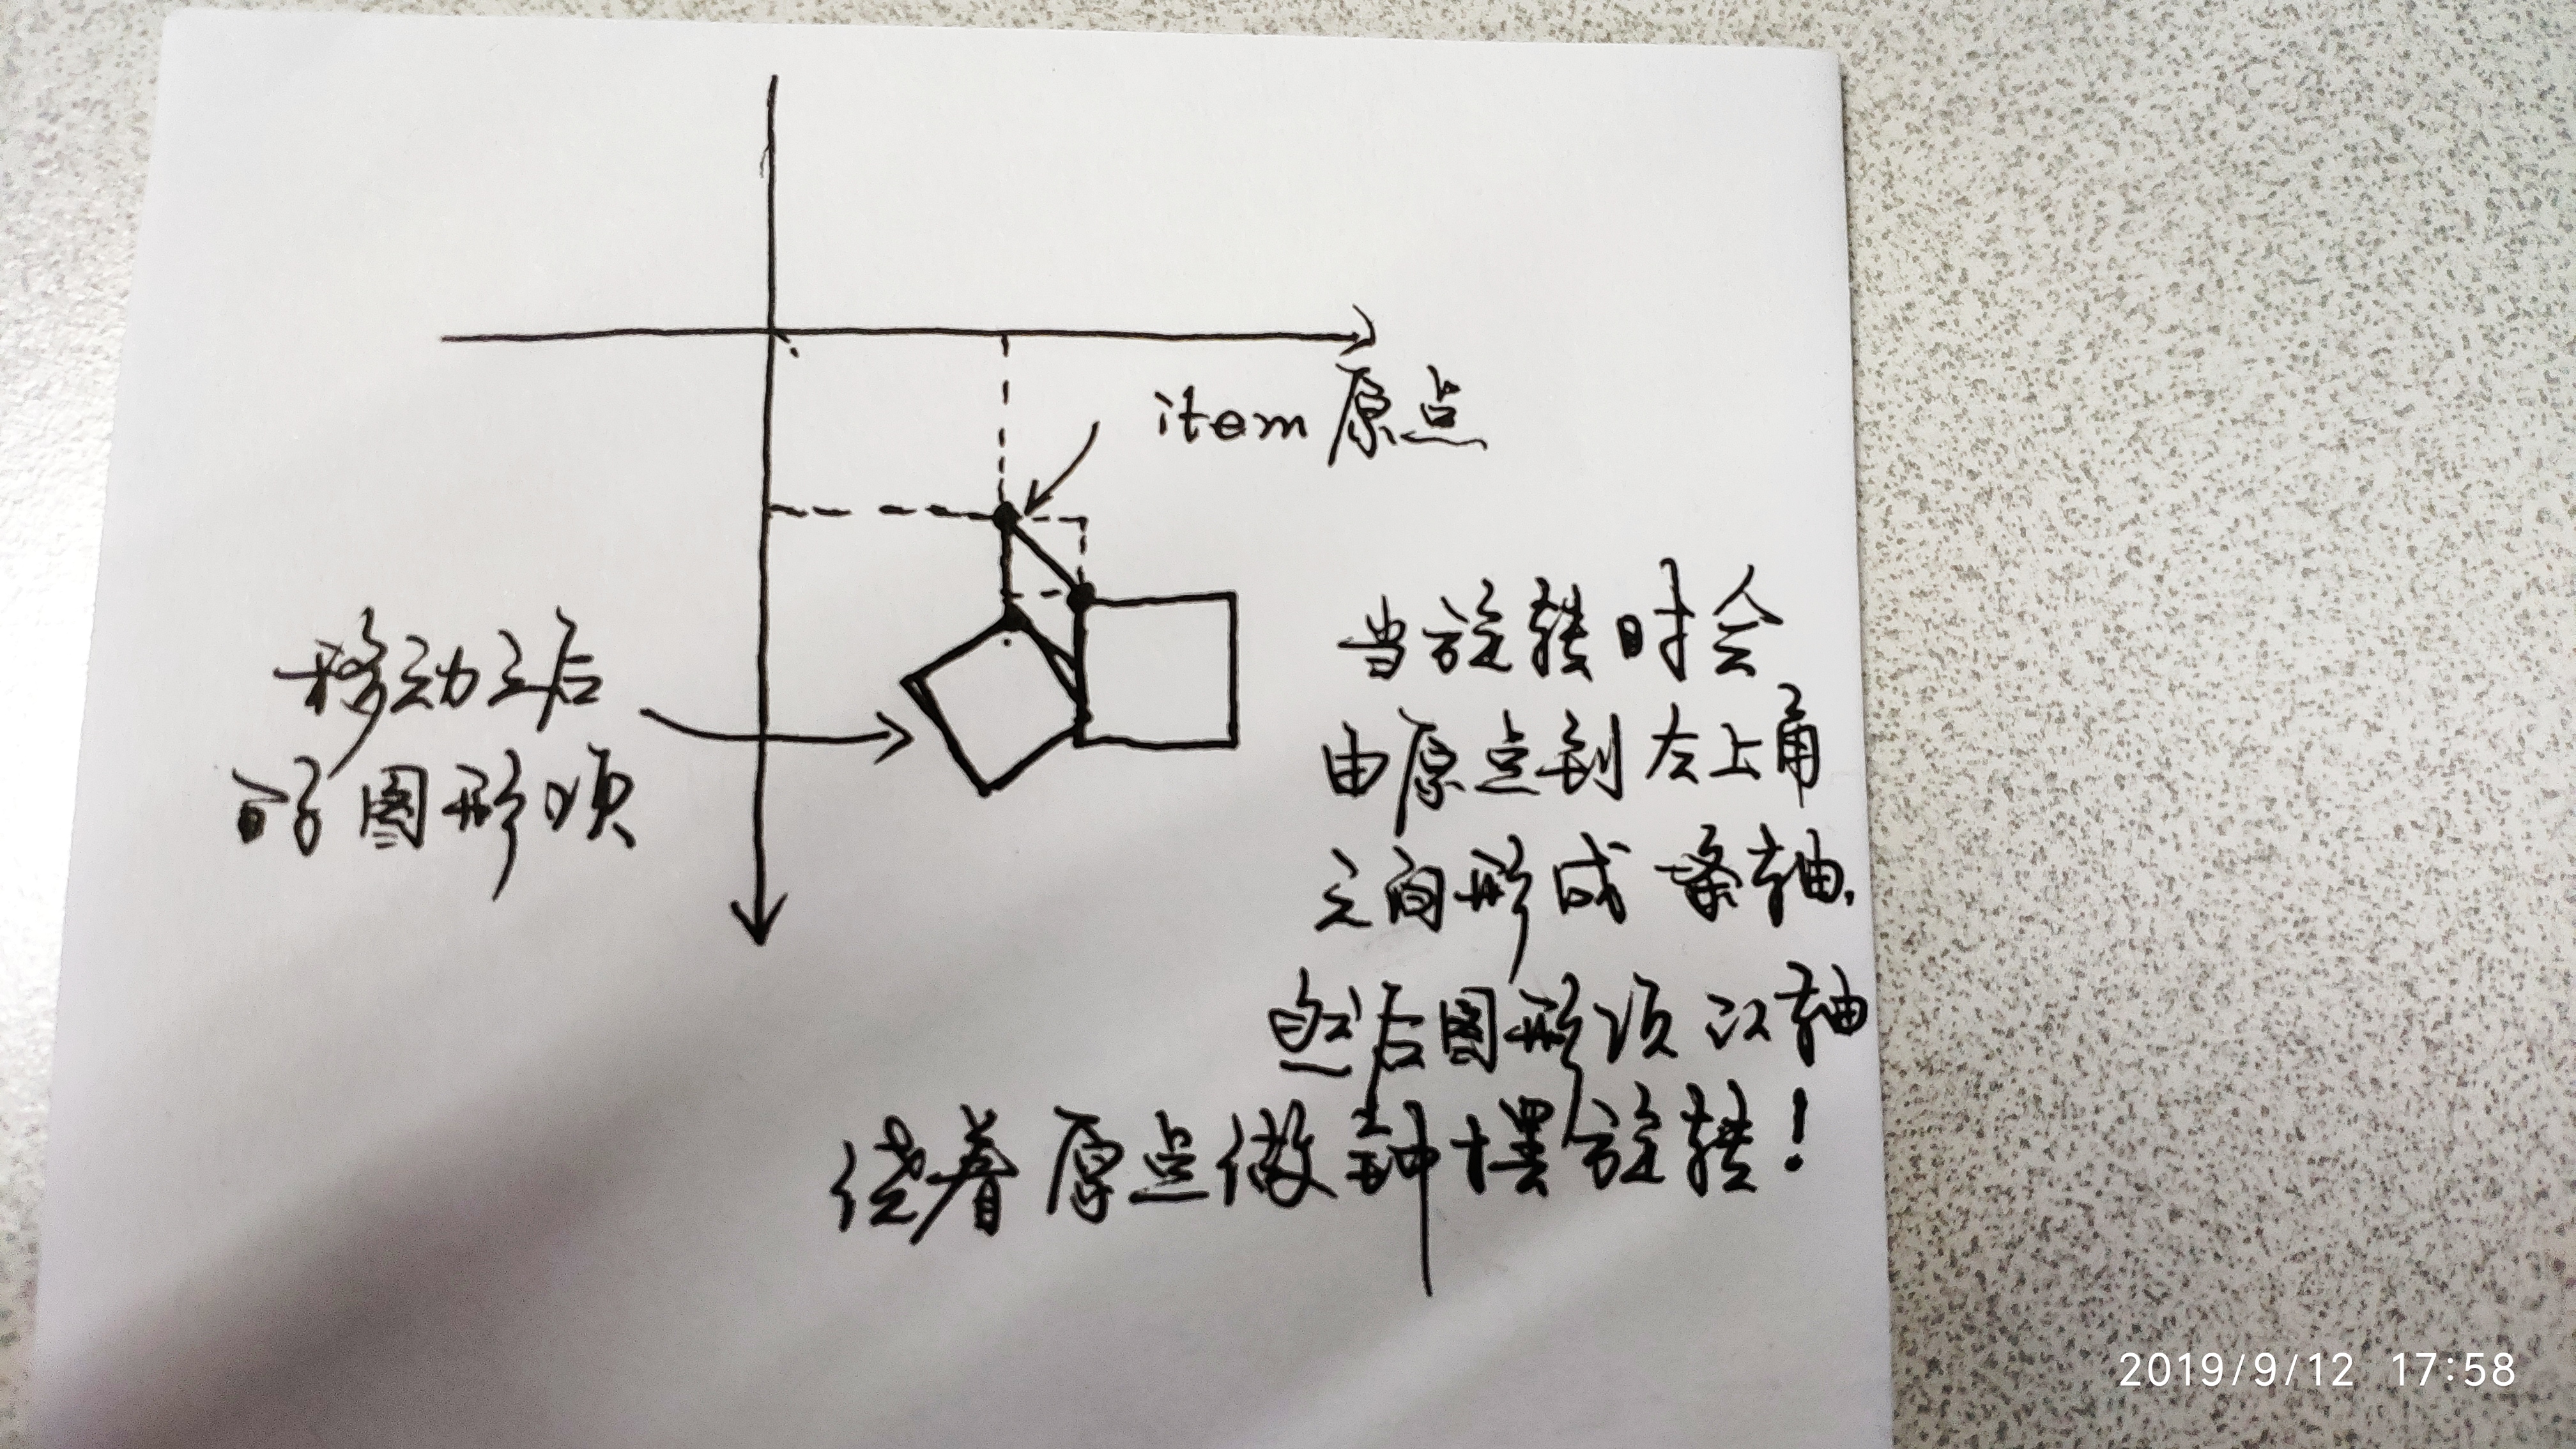 item 原点
移动之后
的图形项
当旋转时会
由原点到左上角
之间形成一条轴,
然后图形项以轴
绕着原点做钟摆旋转！
2019/9/12 17:58